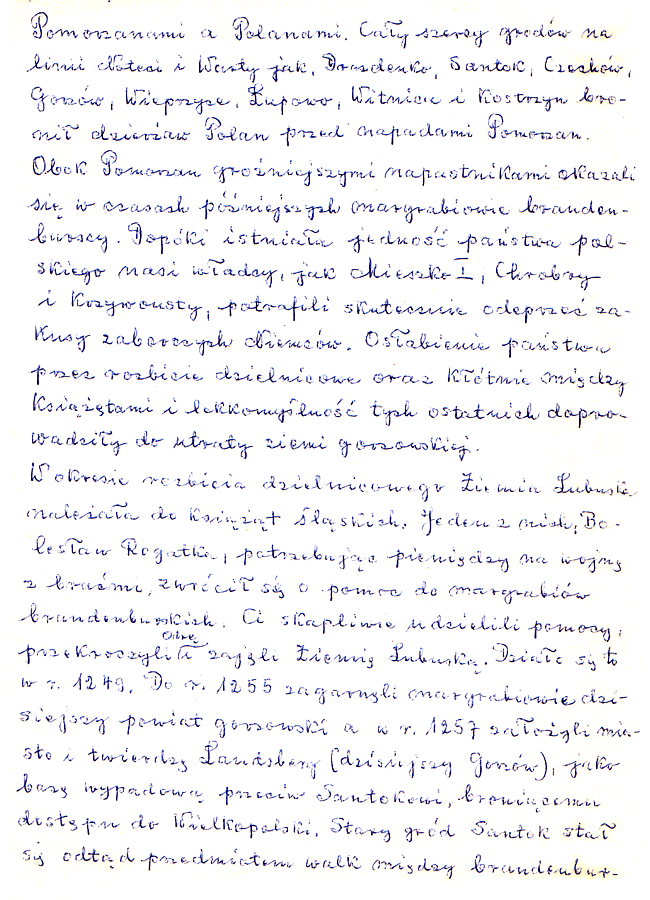 Pomorzanami a Polanami. Cały szereg grodów na
linii Noteci i Warty jak, Drezdenko, Santok, Czechów,
Gorzów, Wieprzyce, Łupowo, Witnica i Kostrzyn bro-
nił dzierżaw Polan przed napadami Pomorzan.
Obok Pomorzan groźniejszymi napastnikami okazali
się w czasach późniejszych margrabiowie branden-
burscy. Dopóki istniała jedność państwa pol-
skiego nasi władcy, jak Mieszko I, Chrobry
i Krzywousty, potrafili skutecznie odeprzeć za-
kusy zaborczych Niemców. Osłabienie państwa
przez rozbicie dzielnicowe oraz kłótnie między
książętami i lekkomyślność tych ostatnich dopro-
wadziły do utraty ziemi gorzowskiej.
W okresie rozbicia dzielnicowego Ziemia Lubuska
należała do książąt śląskich. Jeden z nich, Bo-
lesław Rogatka, potrzebując pieniędzy na wojnę
z braćmi, zwrócił się o pomoc do margrabiów
brandenburskich. Ci skapliwie udzielili pomocy,
przekroczyli Odrę i zajęli Ziemię Lubuską. Działo się to
w r. 1249. Do r. 1255 zagarnęli margrabiowie dzi-
siejszy powiat gorzowski a w r. 1257 założyli mia-
sto i twierdzę Landsberg (dzisiejszy Gorzów), jako
bazę wypadową przeciw Santokowi, broniącemu
dostępu do Wielkopolski. Stary gród Santok stał
się odtąd przedmiotem walk między brandenbur-